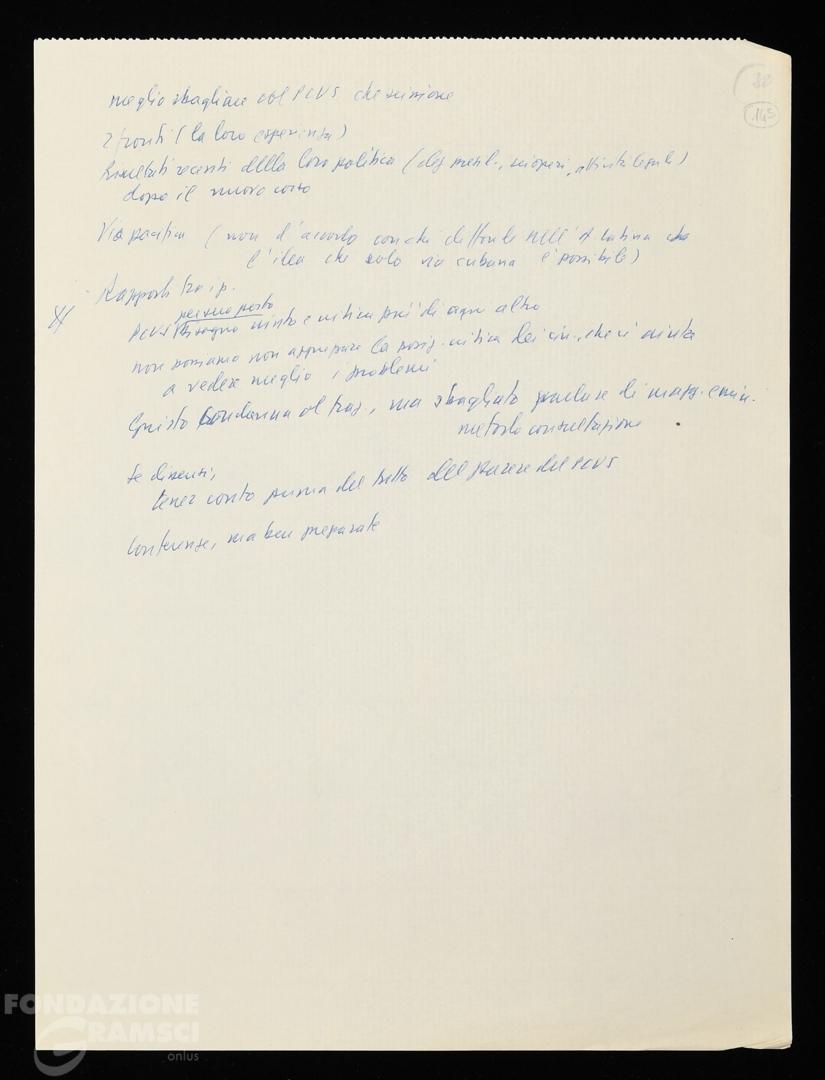 80
145
meglio sbagliare col PCUS che scissione
2 fronti (la loro esperienza)
Risultati recenti della loro politica (
dopo il nuovo corso
Via pacifica (non d'accordo con chi diffonde nell'A latina
l'idea che solo via cubana è possibile)
Rapporti tra i p.
per suo posto
PCUS bisogno aiuto e critica più di ogni altro
non possiamo non appoggiare la posiz. critica dei cin., che ci aiuta
a vedere meglio i problemi
Giusto condanna al fraz., ma sbagliato parlare di magg. e min.
metodo consultazione
Se dissensi,
tener conto prima del tutto del parere del PCUS
Conferenze, ma ben preparate
FONDAZIONE
GRAMSCI
onlus